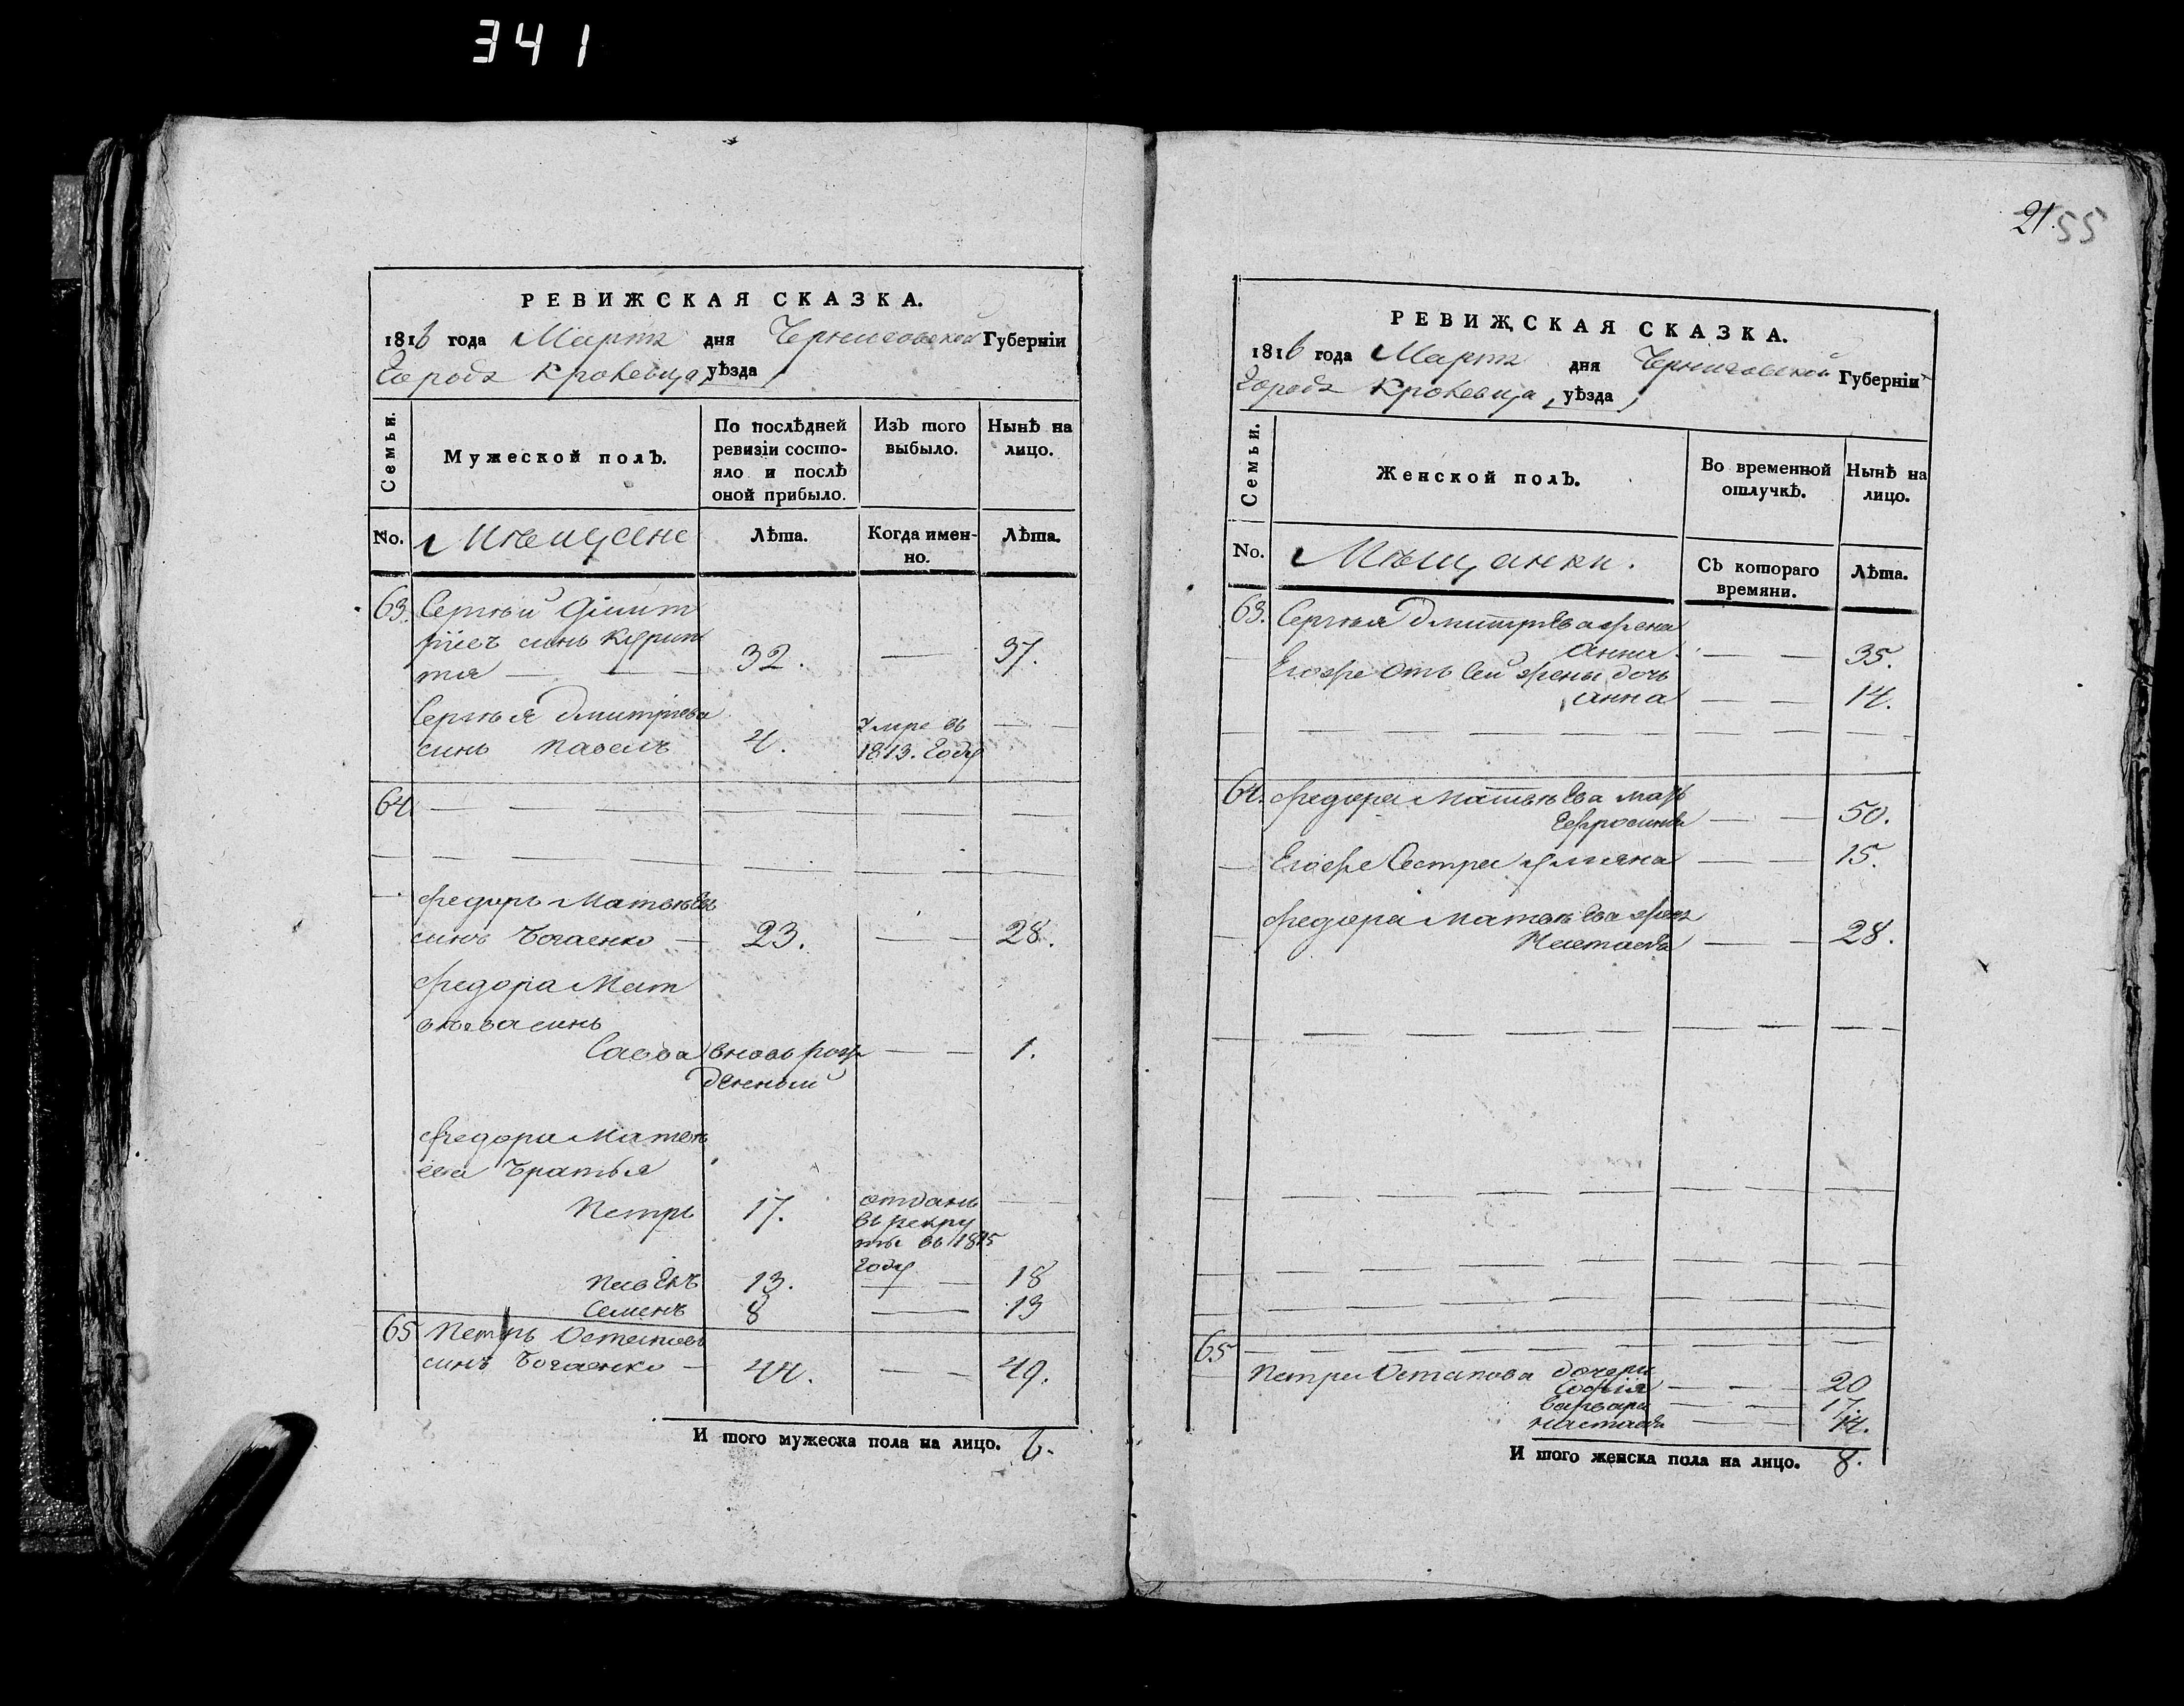 341
РЕВИЖСКАЯ СКАЗКА.
1816 года Мартъ дня Черниговской Губернїи
Городъ Кролевца, уѣзда
Семьи.
Мужеской полЪ.
По послѣдней ревизїи состояло и послѣ оной прибыло.
ИзЪ того выбыло.
НынѢ на лицо.
No.
Мѣщане
Лѣта.
Когда именно.
Лѣта.
63. Сергѣй Дмит
рїевъ синъ
32. — 37.
Сергѣя Дмитрїева
синъ Павелъ 4. умре въ
1813. Году
64.
Федоръ Матвѣевъ
синъ Богаенко — 23. — 28.
Федора Мат
вѣева синъ
Савва вновь рож — 1.
денный
Федора Матвѣ
ева братья
Петръ 17. отданъ
въ рекру
ты въ 1815
Году
13. — 18
Семенъ 8 — 13
65 Петръ Остаповъ
синъ Богаенко — 44. — 49.
И того мужеска пола на лицо. 6.
21. 55
РЕВИЖСКАЯ СКАЗКА.
1816 года Мартъ дня Черниговской Губернїи
Городъ Кролевца, уѣзда
Семьи.
Женской полЪ.
Во временной отлучкѢ.
НынѢ на лицо.
No.
Мѣщанки.
СЪ котораго времяни.
Лѣта.
63. Сергѣя Дмитрїева жена
Анна — 35.
Егоже отъ сей жены дочь
Анна — 14.
64. Федора Матвѣева мать
Ефросинїя — 50.
Егоже сестра Улияна — 15.
Федора Матвѣева жена
Настасїя — 28.
65
Петра Остапова дочери
Софїя — 20
Варвара — 17.
Настасїя — 14.
И того женска пола на лицо. 8.